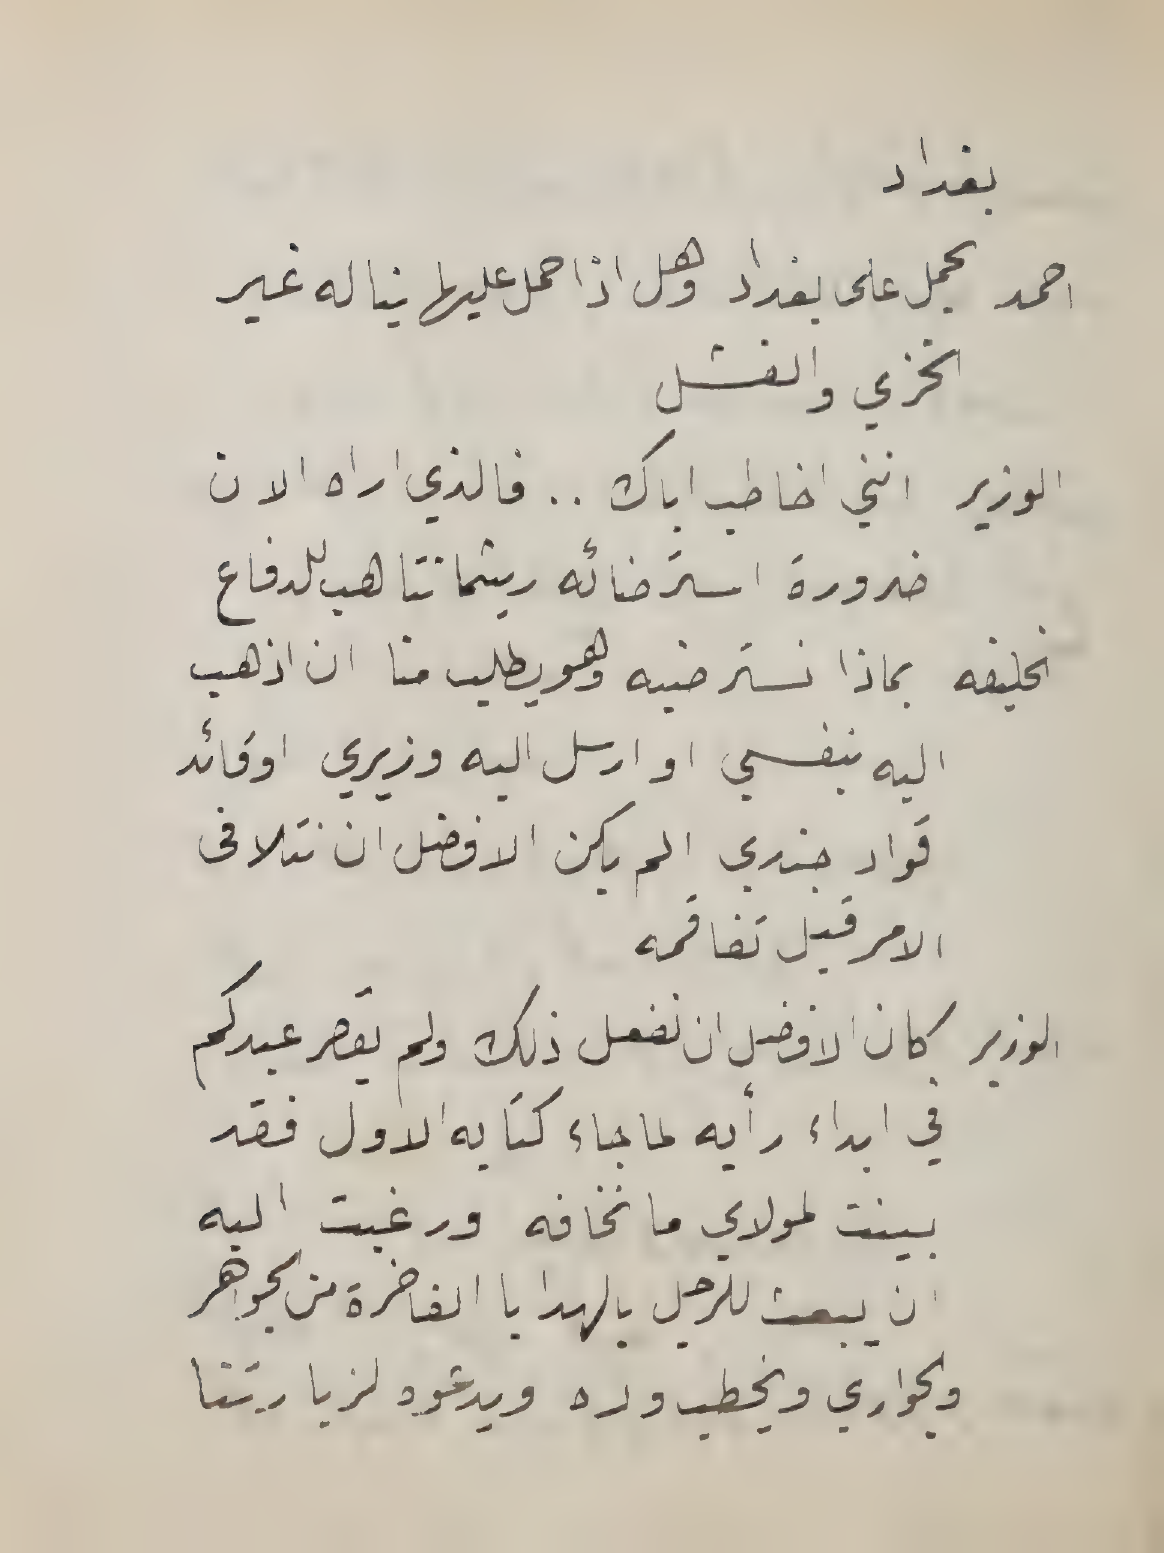 بغداد
احمد يحمل على بغداد وهل اذا حمل عليها يناله غير
الخزي والفشل
الوزير انني اخاطب اباك .. فالذي اراه الان
ضرورة استرضائه ريثما نتاهب للدفاع
الخليفه بماذا نسترضيه وهو يطلب منا ان اذهب
اليه بنفسي او ارسل اليه وزيري او قائد
قواد جندي الم يكن الافضل ان نتلافى
الامر قبل تفاقمه
الوزير كان الافضل ان نفعل ذلك ولم يقصر عبدكم
في ابداء رأيه لما جاء كتابه الاول فقد
بينت لمولاي ما نخافه ورغبت اليه
ان يبعث للرجل بالهدايا الفاخرة من الجواهر
والجواري ويخطب وده ويدعوه لزيارتنا